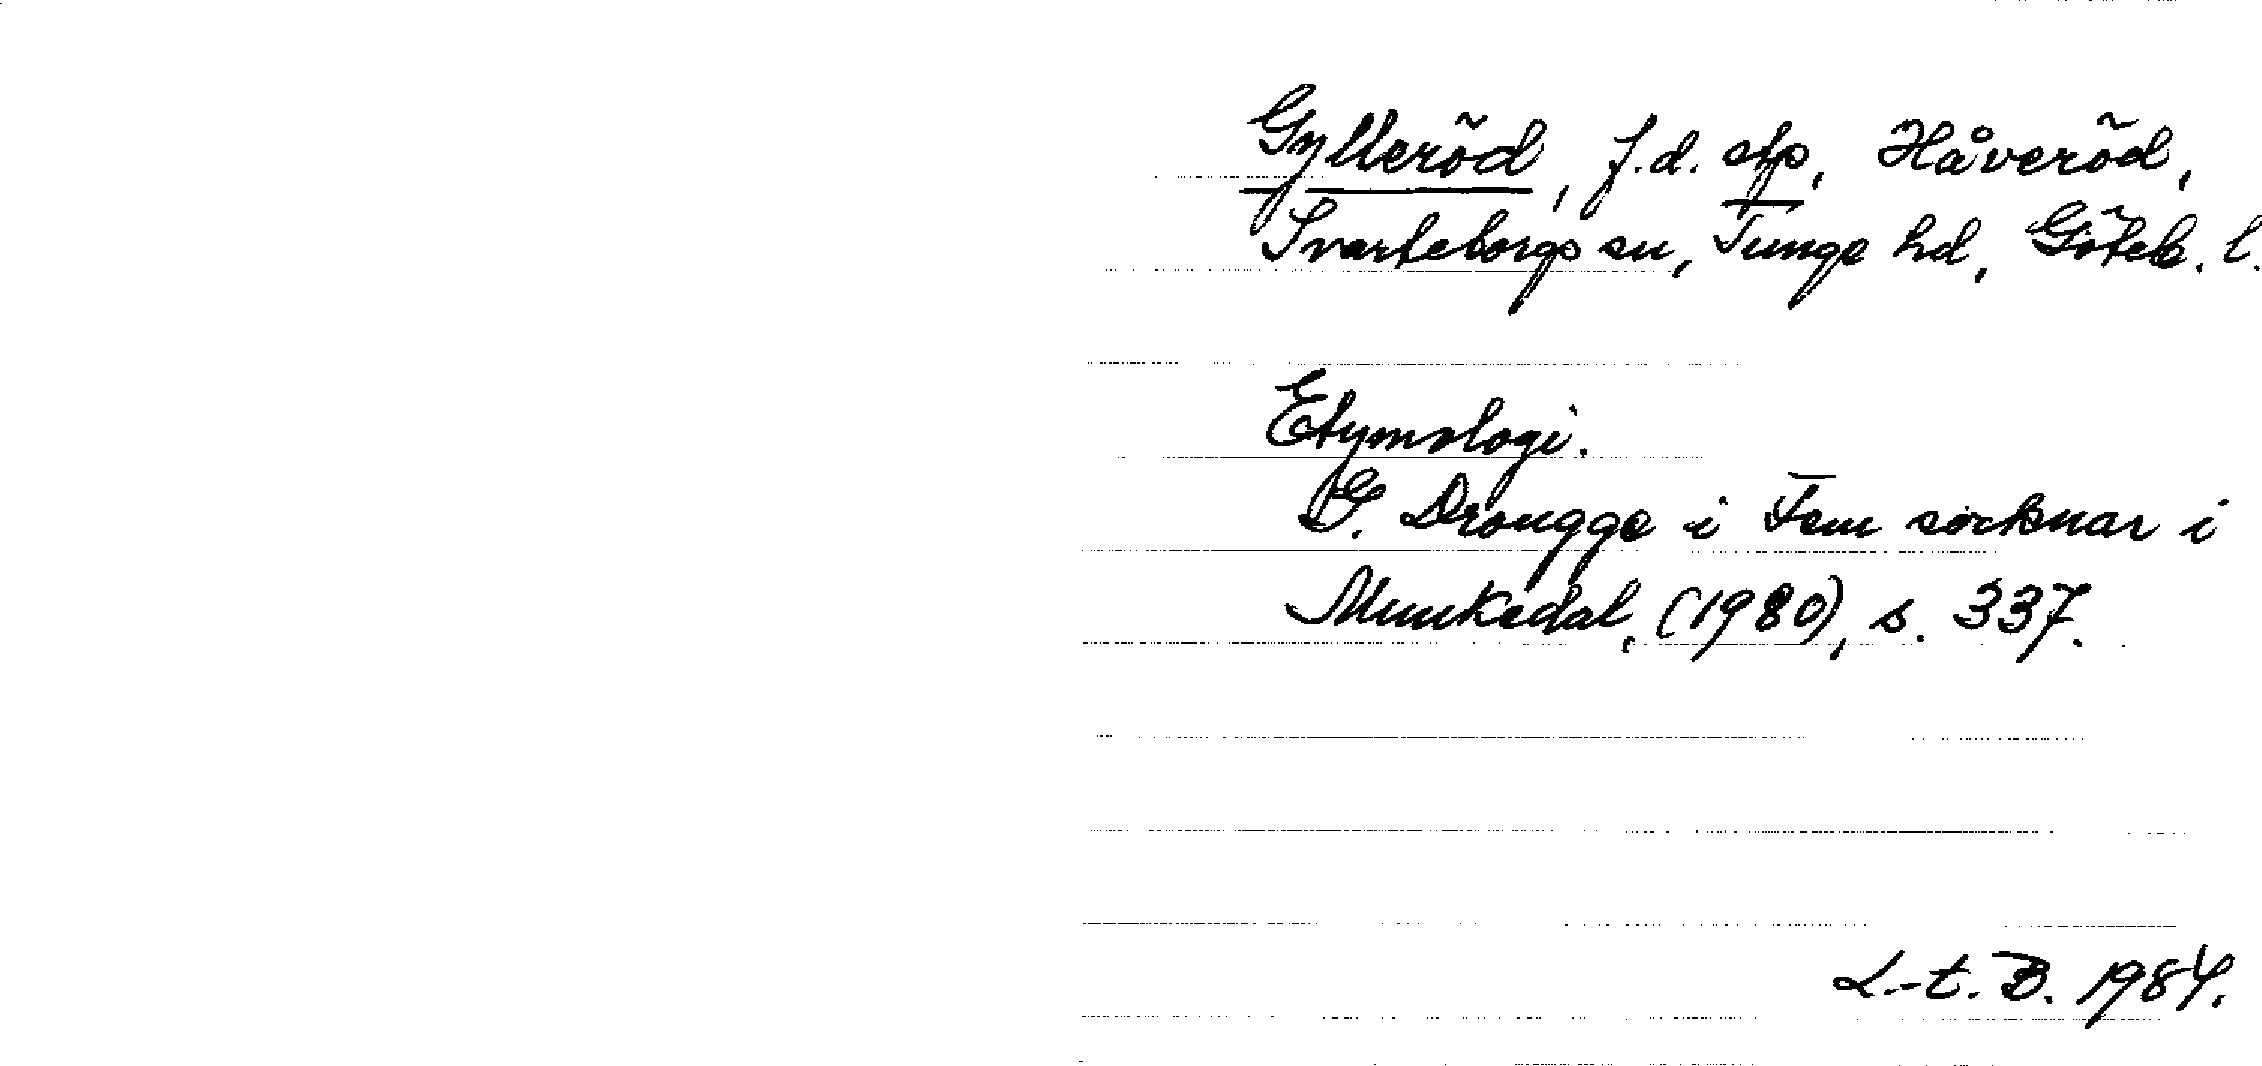 Gylleröd, f.d. stp, Håveröd,
Svarteborgs sn, Tunge hd, Göteb. l.
Etymologi.
G. Drougge i Fem socknar i
Munkedal, (1980), s. 337.
L.-t. B. 1984.